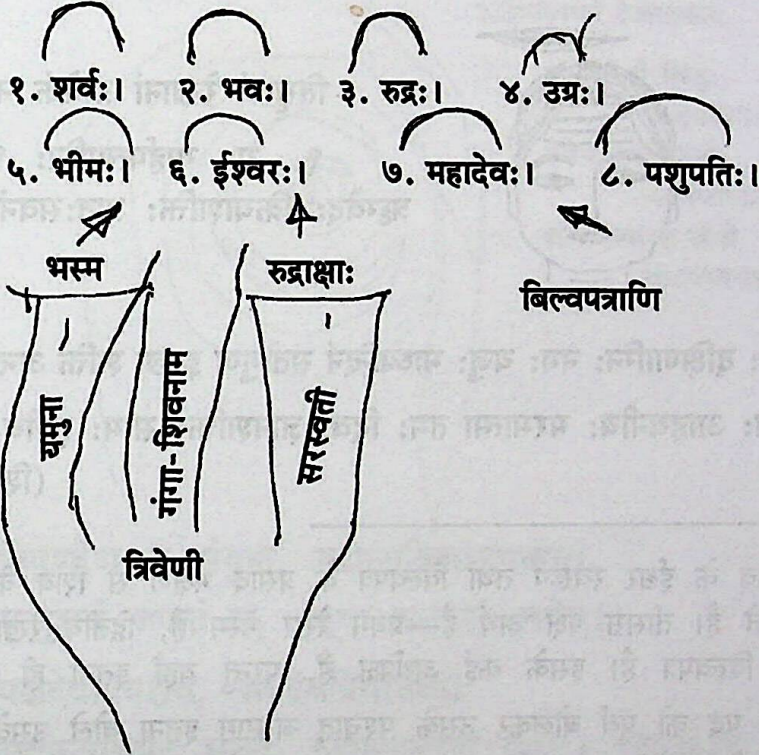 १. शर्वः। २. भवः। ३. रुद्रः। ४. उग्रः।
५. भीमः। ६. ईश्वरः। ७. महादेवः। ८. पशुपतिः।
भस्म रुद्राक्षाः
बिल्वपत्राणि
यमुना
गंगा-शिवनाम
सरस्वती
त्रिवेणी